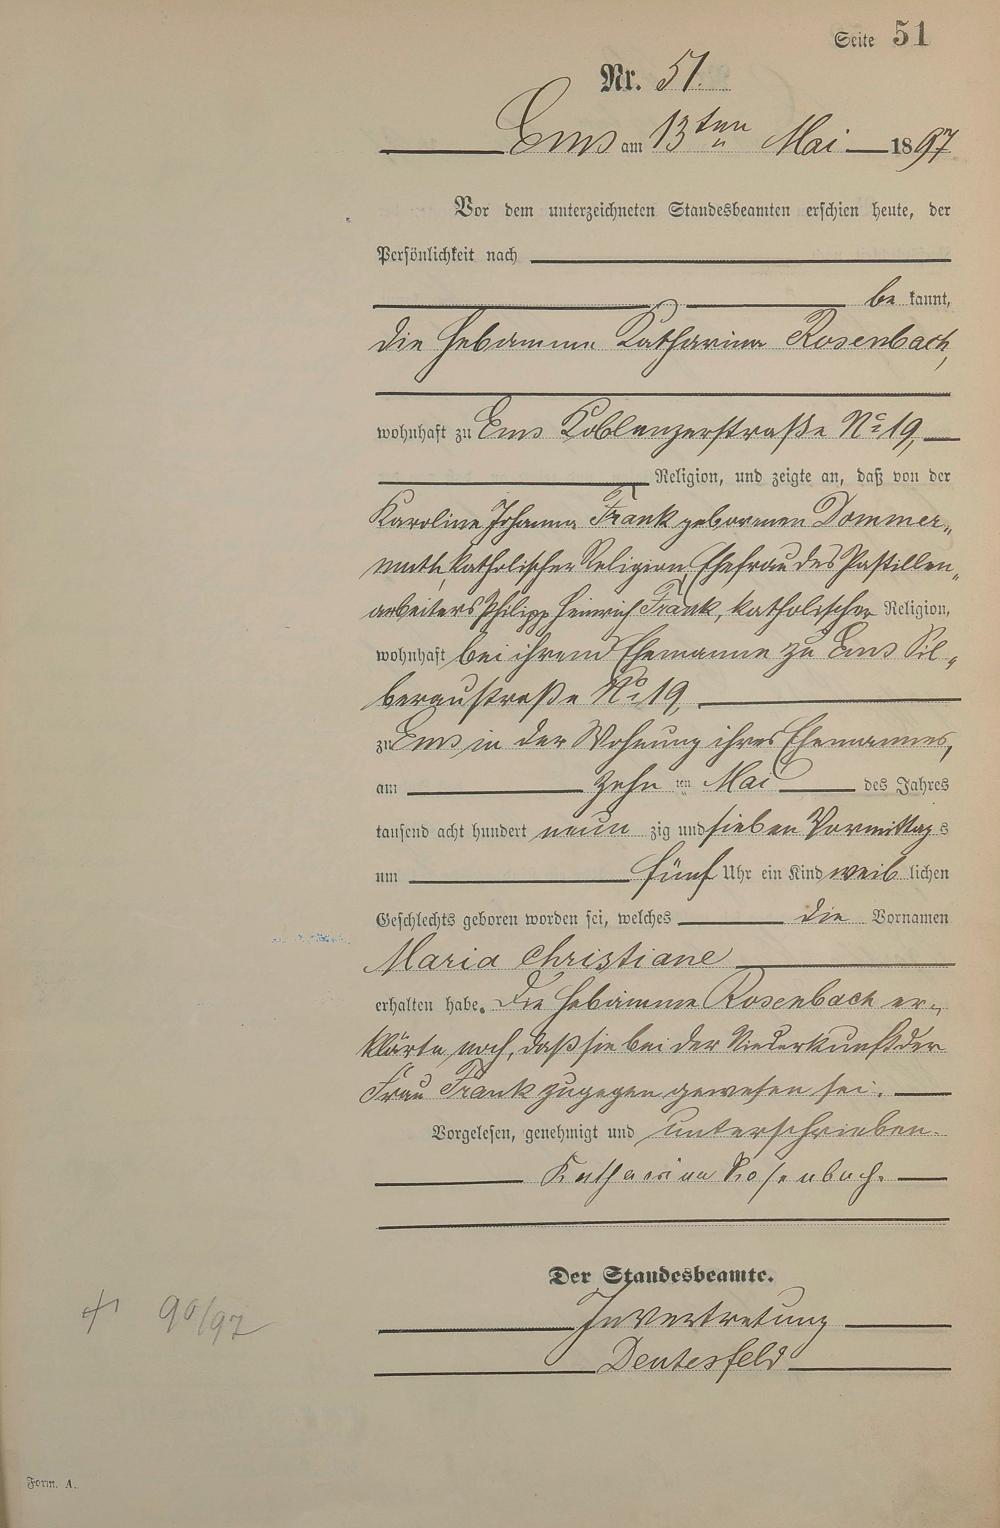 Seite 51
Nr. 51.
Ems am 13ten Mai 1897
Vor dem unterzeichneten Standesbeamten erschien heute, der
Persönlichkeit nach
be kannt,
die Hebamme Katharina Rosenbach,
wohnhaft zu Ems Koblenzerstraße No 19,
Religion, und zeigte an, daß von der
Karoline Johanna Frank geborenen Dommer„
muth, katholischer Religion, Ehefrau des Pastillen„
arbeiters Philipp Heinrich Frank, katholischer Religion,
wohnhaft bei ihrem Ehemanne zu Ems Sil„
beraustraße No 19,
zu Ems in der Wohnung ihres Ehemannes,
am zehn ten Mai des Jahres
tausend acht hundert neun zig und sieben Vormittag s
um fünf Uhr ein Kind weib lichen
Geschlechts geboren worden sei, welches die Vornamen
Maria Christiane
erhalten habe. Die Hebamme Rosenbach er„
klärte noch, daß sie bei der Niederkunft der
Frau Frank zugegen gewesen sei.
Vorgelesen, genehmigt und unterschrieben.
Katharina Rosenbach.
Der Standesbeamte.
In Vertretung
Deutesfeld
+ 90/97
Form. A.